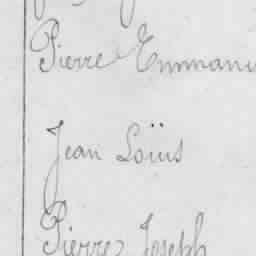 Pierre Emmanu
Jean Loüis
Pierre Joseph